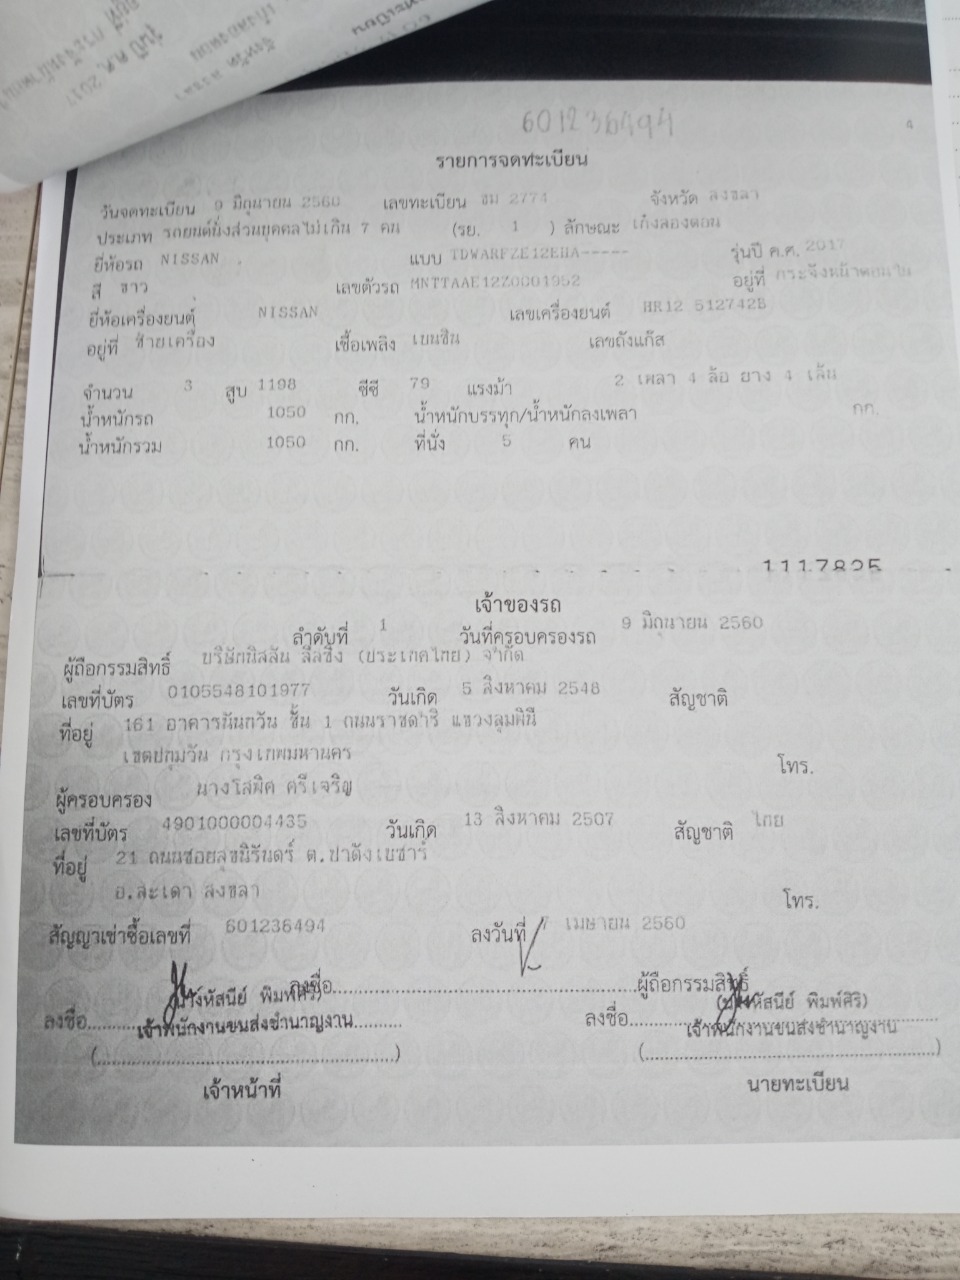 601236494
4
รายการจดทะเบียน
วันจดทะเบียน 9 มิถุนายน 2560 เลขทะเบียน ขม 2774 จังหวัด สงขลา
ประเภท รถยนต์นั่งส่วนบุคคลไม่เกิน 7 คน (รย. 1 ) ลักษณะ เก๋งสองตอน
ยี่ห้อรถ NISSAN แบบ TDWARFZE12EHA----- รุ่นปี ค.ศ. 2017
สี ขาว เลขตัวรถ MNTTAAE12Z0001952 อยู่ที่ กระจังหน้าตอนใน
ยี่ห้อเครื่องยนต์ NISSAN เลขเครื่องยนต์ HR12 512742B
อยู่ที่ ซ้ายเครื่อง เชื้อเพลิง เบนซิน เลขถังแก๊ส
จำนวน 3 สูบ 1198 ซีซี 79 แรงม้า 2 เพลา 4 ล้อ ยาง 4 เส้น
น้ำหนักรถ 1050 กก. น้ำหนักบรรทุก/น้ำหนักลงเพลา กก.
น้ำหนักรวม 1050 กก. ที่นั่ง 5 คน
1117825
เจ้าของรถ
ลำดับที่ 1 วันที่ครอบครองรถ 9 มิถุนายน 2560
ผู้ถือกรรมสิทธิ์ บริษัทนิสสัน ลีสซิ่ง (ประเทศไทย) จำกัด
เลขที่บัตร 0105548101977 วันเกิด 5 สิงหาคม 2548 สัญชาติ
ที่อยู่ 161 อาคารนันทวัน ชั้น 1 ถนนราชดำริ แขวงลุมพินี
เขตปทุมวัน กรุงเทพมหานคร โทร.
ผู้ครอบครอง นางโสพิศ ศรีเจริญ
เลขที่บัตร 4901000004435 วันเกิด 13 สิงหาคม 2507 สัญชาติ ไทย
ที่อยู่ 21 ถนนซอยสุขนิรันดร์ ต.ปาดังเบซาร์
อ.สะเดา สงขลา โทร.
สัญญาเช่าซื้อเลขที่ 601236494 ลงวันที่ 7 เมษายน 2560
ลงชื่อ ผู้ถือกรรมสิทธิ์
(นางหัสนีย์ พิมพ์ศิริ) (นางหัสนีย์ พิมพ์ศิริ)
ลงชื่อ เจ้าพนักงานขนส่งชำนาญงาน ลงชื่อ เจ้าพนักงานขนส่งชำนาญงาน
(....................) (....................)
เจ้าหน้าที่ นายทะเบียน